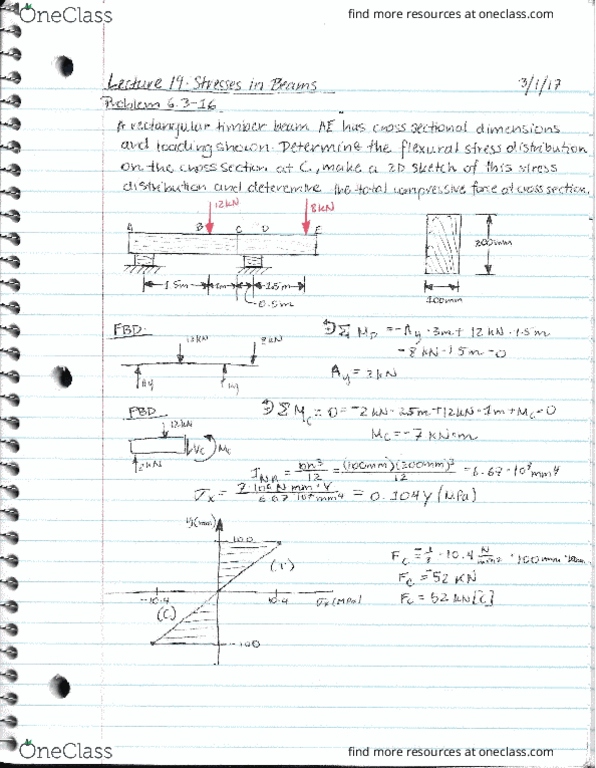 OneClass
find more resources at oneclass.com
Lecture 19 - Stresses in Beams 3/1/17
Problem 6.3-16
A rectangular timber beam AE has cross sectional dimensions
and loading shown. Determine the flexural stress distribution
on the cross section at C, make a 2D sketch of this stress
distribution and determine the total compressive force at cross section.
12kN 8kN
A B C D E
1.5m 1m 1.5m
0.5m
200mm
100mm
FBD:
12kN 8kN
Ay
ΣM = -Ay · 3m + 12 kN · 1.5m
- 8 kN · 1.5m = 0
Ay = 2kN
FBD:
12kN
Vc Mc
2kN
ΣMc = 0 = -2kN · 2.5m + 12kN · 1m + Mc = 0
Mc = -7 kN·m
= bh³/12 = (100mm)(200mm)³/12 = 6.67 · 10⁷ mm⁴
σx = = 0.104y (MPa)
y(mm)
100
(T)
-10.4 10.4 σx (MPa)
(C)
-100
Fc = · 10.4 N/mm² · 100mm
Fc = -52 kN
Fc = 52 kN [C]
OneClass
find more resources at oneclass.com